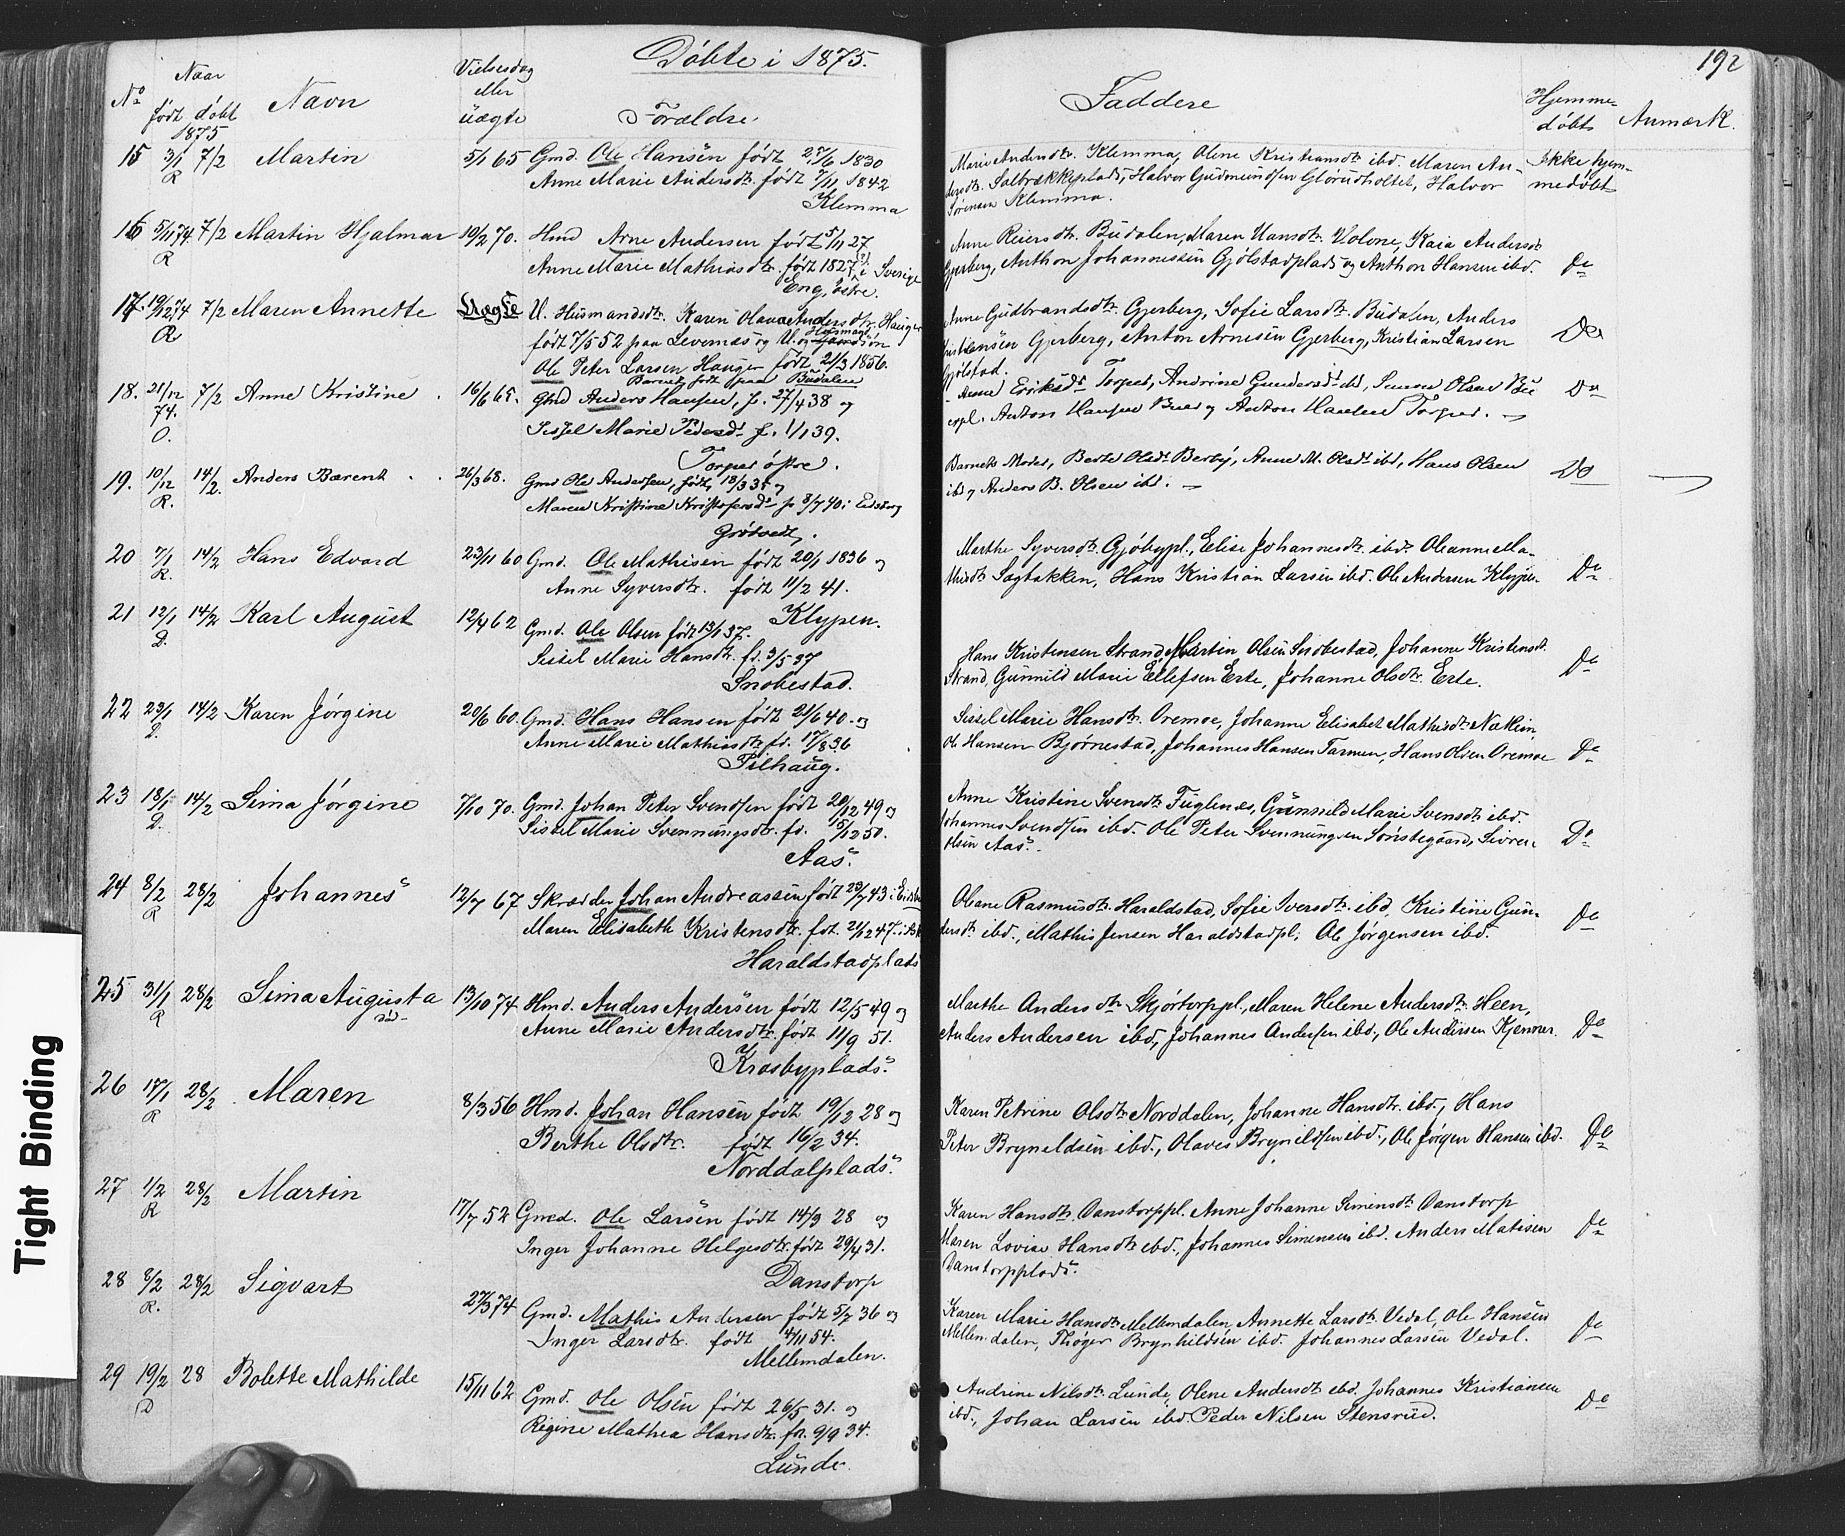 Døbte i 1875.
192
No
Naar
født døbt
1875
Navn
Vielsesdag
eller
uægte
Forældre
Faddere
Hjemme-
døbt
Anmærk.
15 3/1 7/2 Martin 5/1 65 Gmd. Ole Hansen født 27/6 1830
R Anne Marie Andersdtr. født 7/11 1842
Klemma
Marie Andersdtr. Klemma, Olene Kristiansdtr ibd. Maren An-
dersdtr. Salbrækkeplads, Halvor Gudmundsen Glørudholtet, Halvor
Sørensen Klemma.
Ikke hjem-
medøbt
16 5/11 74 7/2 Martin Hjalmar 19/2 70. Hmd Arne Andersen født 5/11 27
R Anne Marie Mathiasdtr. født 1827 i Sverige
Eng, østre.
Anne Reiersdtr. Budalen, Maren Hansdtr. Kolone, Kaia Andersdtr
Gjerberg, Anthon Johannessen Gjølstadplads og Anthon Hansen ibd.
Do
17. 19/12 74 7/2 Maren Annette Uægte U. Husmandsdtr. Karen Olava Andersdtr. Hauger
R født 7/5 52 paa Levernæs og U. og Husmands søn
Ole Peter Larsen Hauger født 21/3 1856.
Barnet født paa Budalen
Anne Gudbrandsdtr. Gjerberg, Sofie Larsdtr. Budalen, Anders
Kristiansen Gjerberg, Anton Arnesen Gjerberg, Kristian Larsen
Gjølstad.
Do
18. 21/12 7/2 Anne Kristine 16/6 65. Gmd Anders Hansen, f. 27/4 38 og
74. Sissel Marie Pedersdr f. 1/1 39.
O.
Torper østre.
Anne Eriksdr Torper, Andrine Gundersdr ibd,
Anton Hansen Bue og Anton Hansen Torper.
Do
19. 10/12 14/2. Anders Bærent 26/3 68. Gmd Ole Andersen, født 18/3 35 og
R. Maren Kristine Kristofersdr f 8/7 40 i Eidsberg
Grødvedt.
Barnets Moder, Berte Olsdr Berby, Anne M. Olsdr ibd, Hans Olsen
ibd og Anders B. Olsen ibd.
Do
20 7/1 14/2 Hans Edvard 23/11 60 Gmd. Ole Mathisen født 20/1 1836 og
R. Anne Syversdtr. født 11/2 41.
Klypen.
Marthe Syversdtr. Gjøbypl., Elise Johannesdtr. ibd. Oleanne Ma-
thisdtr Sagbakken, Hans Kristian Larsen ibd. Ole Andersen Klypen.
Do
21 12/1 14/2 Karl August 12/4 62 Gmd. Ole Olsen født 13/1 37.
D. Sissel Marie Hansdtr. fd. 3/5 37
Snobestad.
Hans Kristensen Strand, Martin Olsen Snobestad, Johanne Kristensdt.
Strand, Gunnild Marie Ellefsen Erte, Johanne Olsdtr. Erte.
Do
22 23/1 14/2 Karen Jørgine 20/6 60. Gmd. Hans Hansen født 21/6 40. og
D. Anne Marie Mathiasdtr. fd. 17/8 36
Pilhaug.
Sissel Marie Hansdtr. Oremoe, Johanne Elisabet Mathisdtr Nakkim
Ole Hansen Bjørnestad, Johannes Hansen Tarmen, Hans Olsen Oremoe
Do
23 18/1 14/2 Sina Jørgine 7/10 70. Gmd. Johan Peter Svendsen født 20/12 49 og
D. Sissel Marie Svenningsdtr. fd. 15/12 50.
Aas.
Anne Kristine Svensdtr. Fuglenæs, Gunnild Marie Svensdtr ibd.
Johannes Svendsen ibd. Ole Peter Svenningsen Sønstegaard, Siver
Olsen Aas.
Do
24 8/2 28/2 Johannes 12/7 67 Skrædder Johan Andreassen født 23/7 43 i
R Maren Elisabeth Kristensdtr. fdt. 21/12 47.
Haraldstadplads
Oleane Rasmusdtr. Haraldstad, Sofie Iversdtr. ibd, Kristine Gun-
dersdt ibd., Mathis Jensen Haraldstadpl; Ole Jørgensen ibd.
Do
25 31/1 28/2 Sina Augusta 13/10 74 Hmd. Anders Andersen født 12/5 49 og
R død Anne Marie Andersdtr. født 11/9 51.
Krosbyplads.
Marthe Andersdtr Skjørtorppl., Maren Helene Andersdtr. Heen,
Anders Andersen ibd, Johannes Andersen ibd., Ole Andersen Kjenner.
Do
26 17/1 28/2 Maren 8/3 56 Hmd. Johan Hansen født 19/12 28 og
R Berthe Olsdtr. født 16/2 34.
Norddalplads.
Karen Petrine Olsdtr Norddalen, Johanne Hansdtr. ibd., Hans
Peter Bryneldsen ibd., Olaves Bryneldsen ibd., Ole Jørgen Hansen ibd.
Do
27 1/2 28/2 Martin 17/7 52 Gmd. Ole Larsen født 14/3 28 og
R Inger Johanne Helgesdtr. født 29/4 31.
Danstorp
Karen Hansdtr. Danstorppl. Anne Johanne Simensdtr Danstorp
Maren Lovise Hansdtr ibd., Johannes Simensen ibd. Anders Matisen
Danstorpplads.
Do
28 8/2 28/2 Sigvart 27/3 74 Gmd. Mathis Andersen født 5/7 36 og
R. Inger Larsdtr. født 4/11 54.
Mellemdalen.
Karen Marie Hansdtr Mellemdalen, Annette Larsdtr. Vedal, Ole Hansen
Mellemdalen, Thøger Brynhildsen ibd. Johannes Larsen Vedal.
Do
29 19/2 28 Bolette Mathilde 15/11 62 Gmd. Ole Olsen født 26/5 31. og
D Regine Mathea Hansdtr. fd. 9/9 34.
Lunde.
Andrine Nilsdtr. Lunde, Olene Andersdt ibd. Johannes Kristiansen
ibd., Johan Larsen ibd. Peder Nilsen Stensrud.
Do
Tight Binding